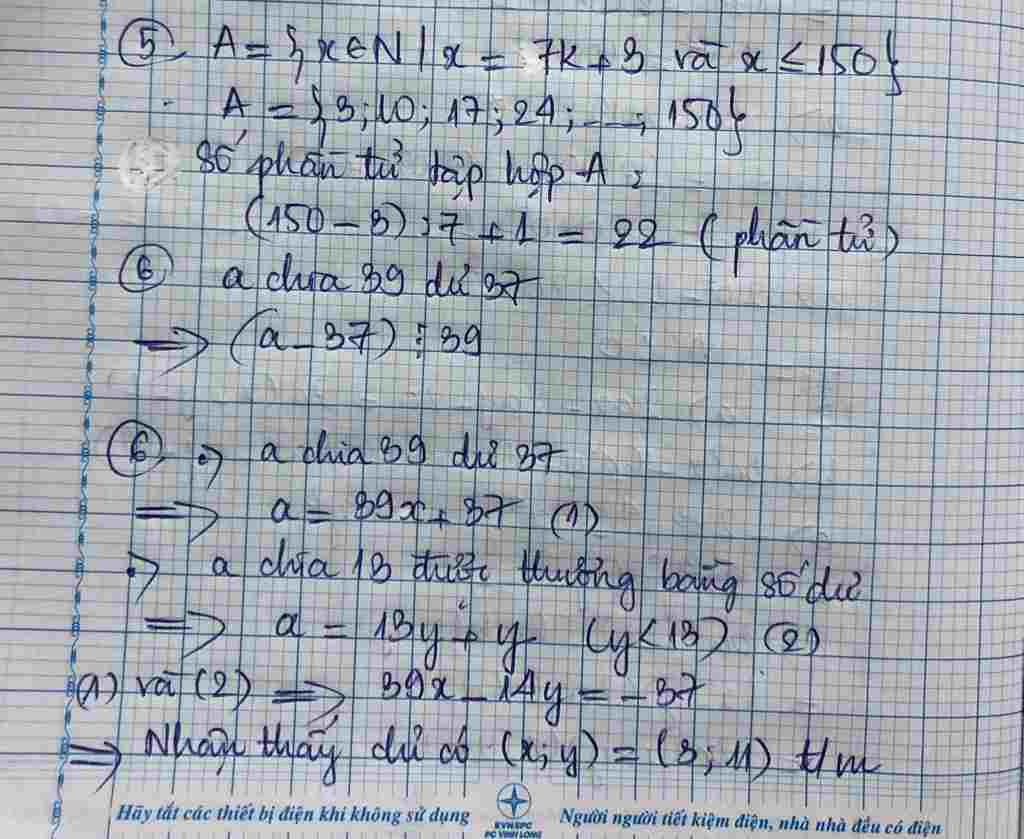 5 A = {x ∈ N | x = 7k + 3 và x ≤ 150}
A = {3; 10; 17; 24; ...; 150}
số phần tử tập hợp A:
(150 - 3) : 7 + 1 = 22 (phần tử)
6 a chia 39 dư 37
=> (a - 37) ⋮ 39
6 •) a chia 39 dư 37
=> a = 39x + 37 (1)
•) a chia 13 được thương bằng số dư
=> a = 13y + y (y < 13) (2)
(1) và (2) => 39x - 14y = -37
=> Nhận thấy chỉ có (x; y) = (3; 11) t/m
Hãy tắt các thiết bị điện khi không sử dụng EVNSPC PC VINH LONG Người người tiết kiệm điện, nhà nhà đều có điện